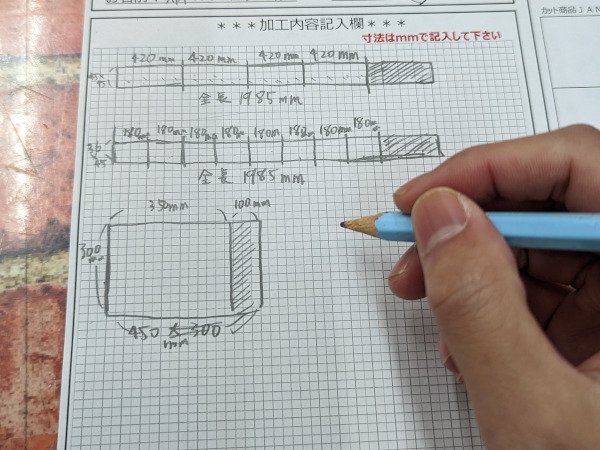 ＊＊＊加工内容記入欄＊＊＊
カット商品JAN
寸法はmmで記入して下さい
420mm 420mm 420mm 420mm
全長 1985mm
180mm 180mm 180mm 180mm 180m 180m 180mm 180m
36
45
全長 1985mm
350mm 100mm
300
mm
450 300
mm